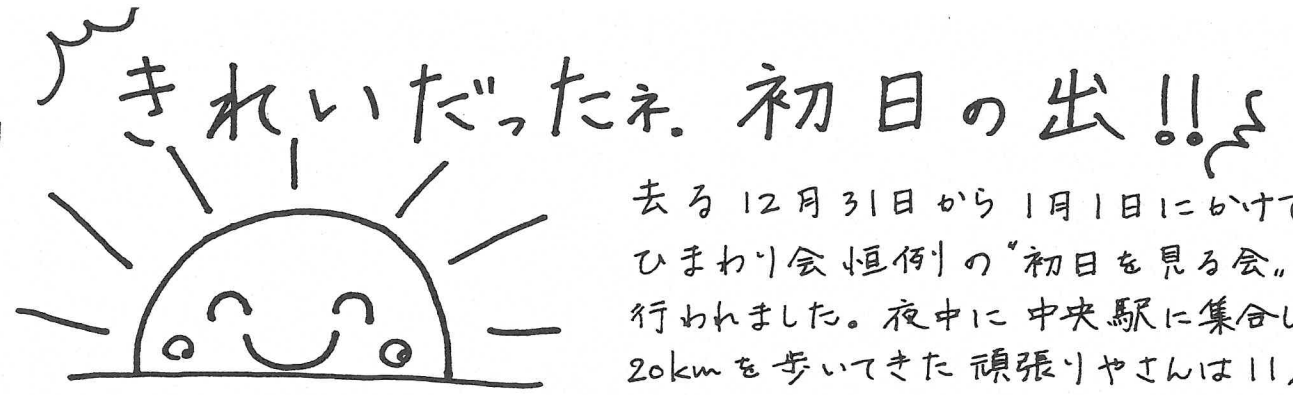 きれいだったネ. 初日の出!!
去る12月31日から1月1日にかけて
ひまわり会恒例の〝初日を見る会〟
行われました。夜中に中央駅に集合し
20kmを歩いてきた頑張りやさんは11